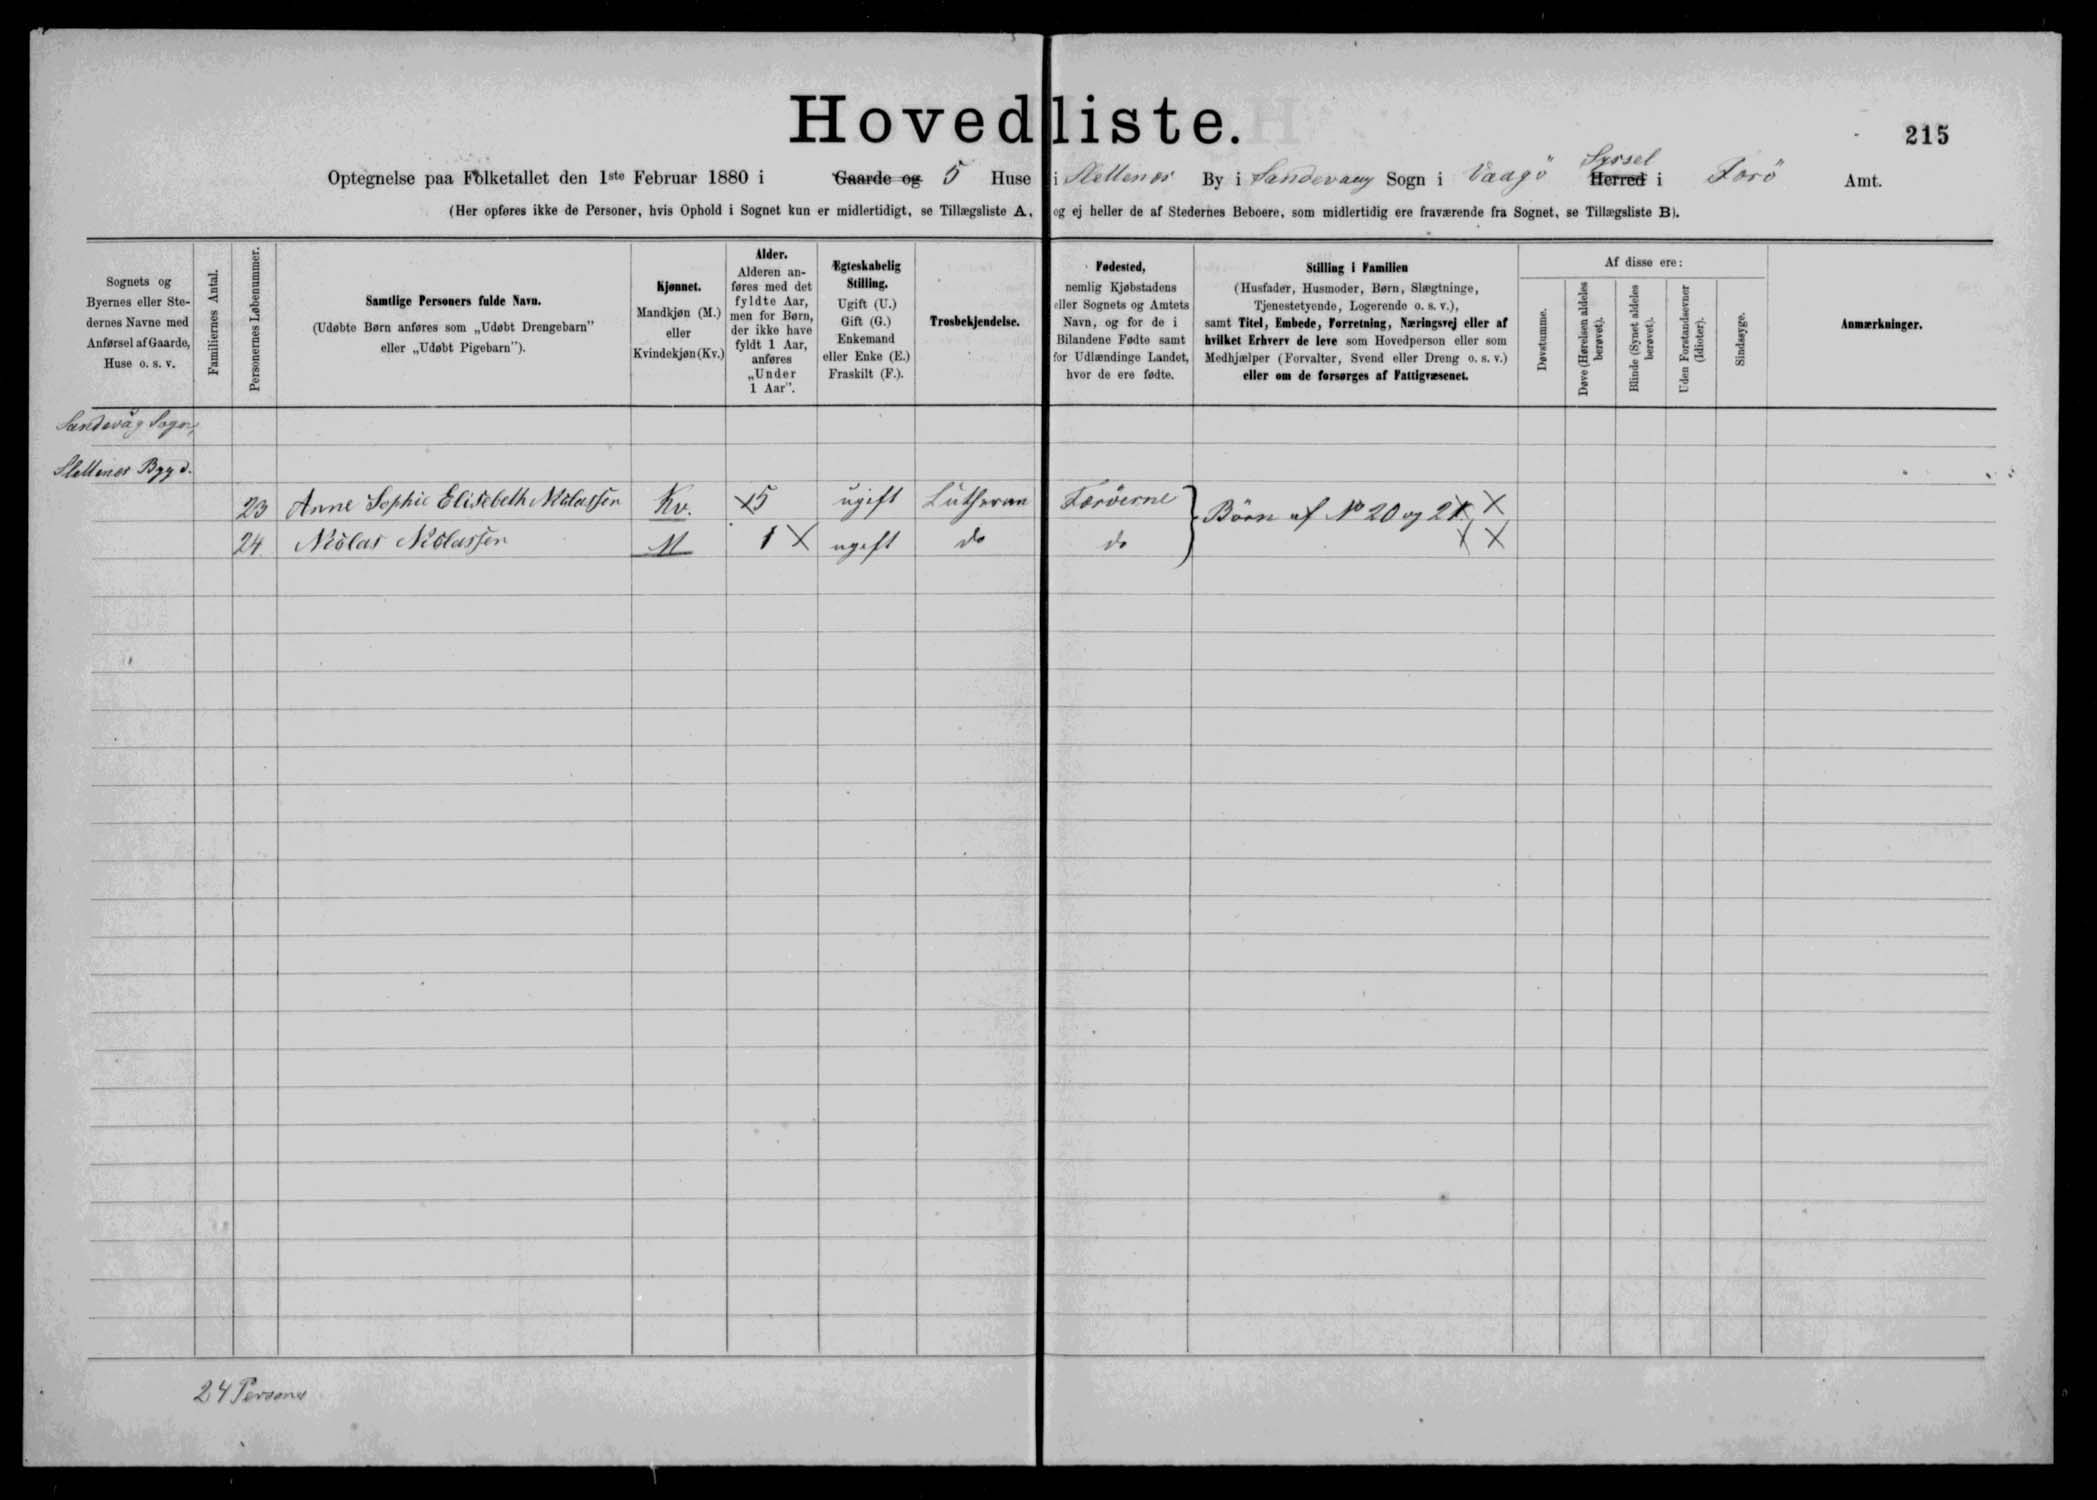 Hovedliste.
215
Optegnelse paa Folketallet den 1ste Februar 1880 i Gaarde og 5 Huse i Slettenes By i Sandevaag Sogn i Vaagö Herred Syssel i Færö Amt.
(Her opføres ikke de Personer, hvis Ophold i Sognet kun er midlertidigt, se Tillægsliste A, og ej heller de af Stedernes Beboere, som midlertidig ere fraværende fra Sognet, se Tillægsliste B).
Sognets og
Byernes eller Ste-
dernes Navne med
Anførsel af Gaarde,
Huse o. s. v.
Familiernes Antal.
Personernes Løbenummer.
Samtlige Personers fulde Navn.
(Udøbte Børn anføres som „Udøbt Drengebarn”
eller „Udøbt Pigebarn”).
Kjønnet.
Mandkjøn (M.)
eller
Kvindekjøn (Kv.)
Alder.
Alderen an-
føres med det
fyldte Aar,
men for Børn,
der ikke have
fyldt 1 Aar,
anføres
„Under
1 Aar”.
Ægteskabelig
Stilling.
Ugift (U.)
Gift (G.)
Enkemand
eller Enke (E.)
Fraskilt (F.).
Trosbekjendelse.
Fødested,
nemlig Kjøbstadens
eller Sognets og Amtets
Navn, og for de i
Bilandene Fødte samt
for Udlændinge Landet,
hvor de ere fødte.
Stilling i Familien
(Husfader, Husmoder, Børn, Slægtninge,
Tjenestetyende, Logerende o. s. v.),
samt Titel, Embede, Forretning, Næringsvej eller af
hvilket Erhverv de leve som Hovedperson eller som
Medhjælper (Forvalter, Svend eller Dreng o. s. v.)
eller om de forsørges af Fattigvæsenet.
Af disse ere:
Døvstumme.
Døve (Hørelsen aldeles
berøvet).
Blinde (Synet aldeles
berøvet).
Uden Forstandsevner
(Idioter).
Sindssyge.
Anmærkninger.
Sandevåg Sogn,
Slettenes Bygd.
23 Anne Sophie Elisebeth Niclassen Kv. 5 ugift Lutheran Færöerne Börn af No 20 og 21
24 Niclas Niclassen M 1 ugift do do
24 Personer